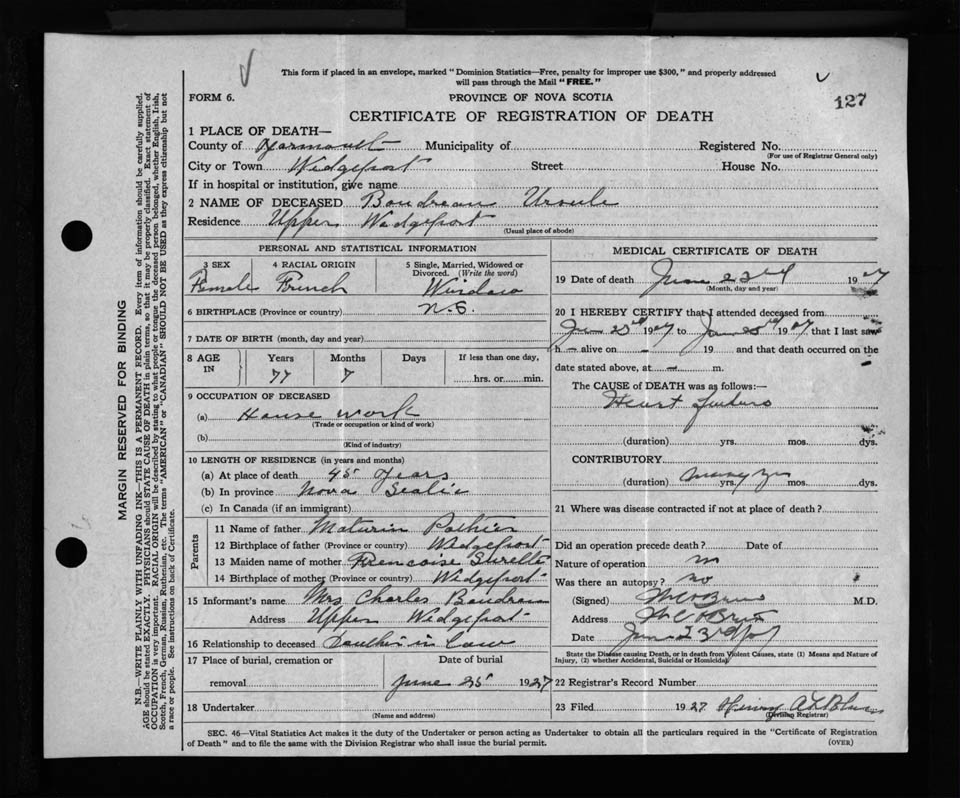 This form if placed in an envelope, marked "Dominion Statistics—Free, penalty for improper use $300," and properly addressed
will pass through the Mail "FREE."
FORM 6. PROVINCE OF NOVA SCOTIA 127
CERTIFICATE OF REGISTRATION OF DEATH
1 PLACE OF DEATH—
County of Yarmouth Municipality of Registered No.
(For use of Registrar General only)
City or Town Wedgeport Street House No.
If in hospital or institution, give name
2 NAME OF DECEASED Boudreau Ursule
Residence Upper Wedgeport
(Usual place of abode)
PERSONAL AND STATISTICAL INFORMATION
3 SEX 4 RACIAL ORIGIN 5 Single, Married, Widowed or
Divorced. (Write the word)
Female French
6 BIRTHPLACE (Province or country) N.S.
7 DATE OF BIRTH (month, day and year)
8 AGE IN Years Months Days If less than one day,
77 7 hrs. or min.
9 OCCUPATION OF DECEASED
(a) House work
(Trade or occupation or kind of work)
(b)
(Kind of industry)
10 LENGTH OF RESIDENCE (in years and months)
(a) At place of death 45 Years
(b) In province Nova Scotia
(c) In Canada (if an immigrant)
Parents
11 Name of father Maturin Pothier
12 Birthplace of father (Province or country) Wedgeport
13 Maiden name of mother
14 Birthplace of mother (Province or country) Wedgeport
15 Informant's name Mrs Charles Boudreau
Address Upper Wedgeport
16 Relationship to deceased in Law
17 Place of burial, cremation or Date of burial
removal June 25 1927
18 Undertaker
(Name and address)
MEDICAL CERTIFICATE OF DEATH
19 Date of death June 23rd 1927
(Month, day and year)
20 I HEREBY CERTIFY that I attended deceased from
1927 to 1927 that I last saw
h— alive on — 19 and that death occurred on the
date stated above, at — m.
The CAUSE of DEATH was as follows:—
Heart failure
(duration) yrs. mos. dys.
CONTRIBUTORY
(duration) many yrs. mos. dys.
21 Where was disease contracted if not at place of death?
Did an operation precede death? Date of
Nature of operation
Was there an autopsy? no
(Signed) M.D.
Address
Date
State the Disease causing Death, or in death from Violent Causes, state (1) Means and Nature of
Injury, (2) whether Accidental, Suicidal or Homicidal
22 Registrar's Record Number
23 Filed 1927
(Division Registrar)
SEC. 46—Vital Statistics Act makes it the duty of the Undertaker or person acting as Undertaker to obtain all the particulars required in the "Certificate of Registration
of Death" and to file the same with the Division Registrar who shall issue the burial permit. (OVER)
MARGIN RESERVED FOR BINDING
N.B.—WRITE PLAINLY WITH UNFADING INK—THIS IS A PERMANENT RECORD. Every item of information should be carefully supplied.
AGE should be stated EXACTLY. PHYSICIANS should STATE CAUSE OF DEATH in plain terms, so that it may be properly classified. Exact statement of
OCCUPATION is very important. RACIAL ORIGIN will be described by stating to what people or tongue the deceased person belonged, whether English, Irish,
Scotch, French, German, Russian, Ruthenian, etc. The terms "AMERICAN" or "CANADIAN" SHOULD NOT BE USED as they express citizenship but not
a race or people. See instructions on back of Certificate.